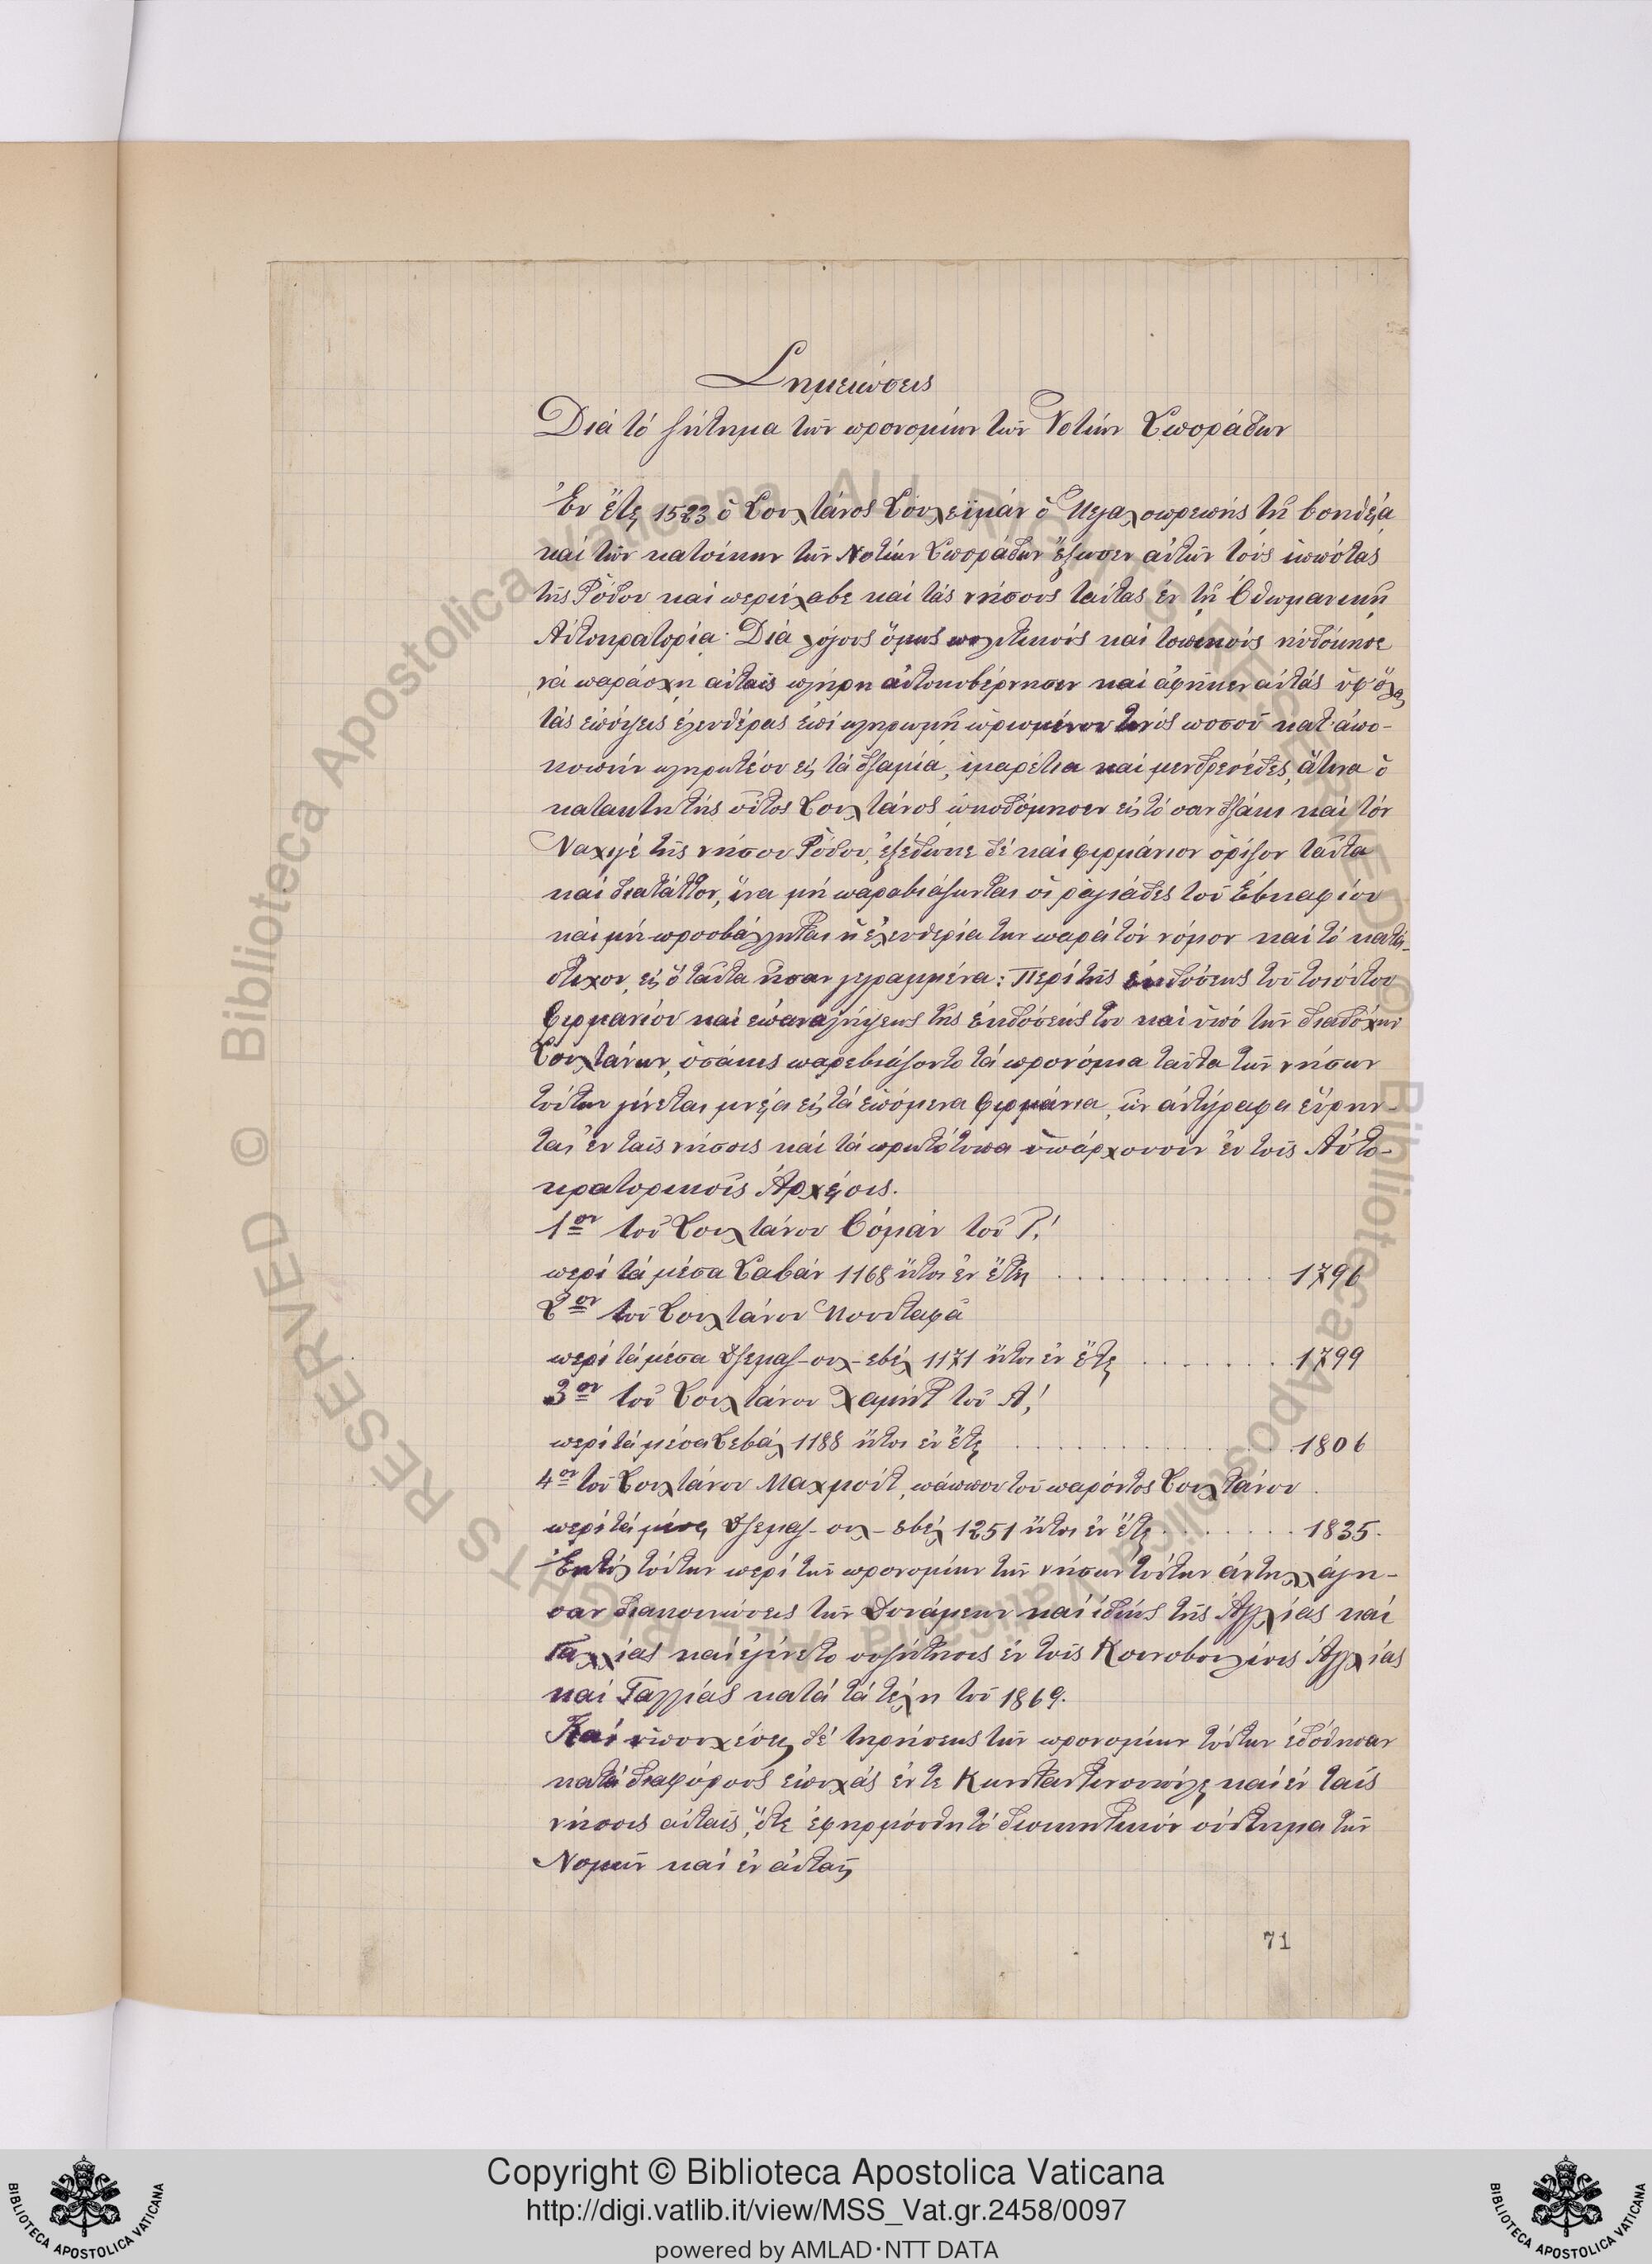 Σημειώσεις
Διά τό ζήτημα τῶν προνομίων τῶν Νοτίων Σποράδων
Ἐν ἔτει 1523 ὁ Σουλτάνος Σουλεϊμάν ὁ Μεγαλοπρεπής τῇ βοηθείᾳ
καί τῶν κατοίκων τῶν Νοτίων Σποράδων ἔξωσεν αὐτῶν τούς ἱππότας
τῆς Ρόδου καί περιέλαβε καί τάς νήσους ταύτας ἐν τῇ Ὀθωμανικῇ
Αὐτοκρατορίᾳ. Διά λόγους ὅμως πολιτικούς καί τοπικούς ηὐδόκησε
νά παράσχῃ αὐταῖς πλήρη αὐτοκυβέρνησιν καί ἀφῆκεν αὐτάς ὑφ' ὅλας
τάς ἐπόψεις ἐλευθέρας ἐπί πληρωμῇ ὡρισμένου τινός ποσοῦ κατ' ἀπο-
κοπήν πληρωτέου εἰς τά τζαμία, ἰμαρέτια καί μενδρεσέδες, ἅτινα ὁ
κατακτητής οὗτος Σουλτάνος ᾠκοδόμησεν εἰς τό σαντζάκι καί τόν
Ναχιγέ τῆς νήσου Ρόδου, ἐξέδωκε δέ καί φιρμάνιον ὁρίζον ταῦτα
καί διατάττον, ἵνα μή παραβιάζωνται οἱ ῥαγιάδες τοῦ Ἐβκαφίου
καί μή προσβάλληται ἡ ἐλευθερία των παρά τόν νόμον καί τό κατά-
στιχον, εἰς ὅ ταῦτα ἦσαν γεγραμμένα: Περί τῆς ἐκδόσεως τοῦ τοιούτου
Φιρμανίου καί ἐπαναλήψεως τῆς ἐκδόσεώς του καί ὑπό τῶν διαδόχων
Σουλτάνων, ὁσάκις παρεβιάζοντο τά προνόμια ταῦτα τῶν νήσων
τούτων γίνεται μνεία εἰς τά ἑπόμενα Φιρμάνια, ὧν ἀντίγραφα εὕρην-
ται ἐν ταῖς νήσοις καί τά πρωτότυπα ὑπάρχουσιν ἐν τοῖς Αὐτο-
κρατορικοῖς Ἀρχείοις.
1ον τοῦ Σουλτάνου Ὀσμάν τοῦ Γ!
περί τά μέσα Σαβάν 1168 ἤτοι ἐν ἔτει ............ 1796
2ον τοῦ Σουλτάνου Μουσταφᾶ
περί τά μέσα Δζεμαζ-ουλ-εβέλ 1171 ἤτοι ἐν ἔτει ........ 1799
3ον τοῦ Σουλτάνου Χαμήτ τοῦ Α!
περί τά μέσα Σεβάλ 1188 ἤτοι ἐν ἔτει .............. 1806
4ον τοῦ Σουλτάνου Μαχμούτ, πάππου τοῦ παρόντος Σουλτάνου
περί τά μέσα Δζεμαζ-ουλ-εβέλ 1251 ἤτοι ἐν ἔτει ........ 1835.
Ἐκτός τούτων περί τῶν προνομίων τῶν νήσων τούτων ἀντηλλάγη-
σαν διακοινώσεις τῶν Δυνάμεων καί ἰδίως τῆς Ἀγγλίας καί
Γαλλίας καί ἐγένετο συζήτησις ἐν τοῖς Κοινοβουλίοις Ἀγγλίας
καί Γαλλίας κατά τά τέλη τοῦ 1869.
Καί ὑποσχέσεις δέ τηρήσεως τῶν προνομίων τούτων ἐδόθησαν
κατά διαφόρους ἐποχάς ἔν τε Κωνσταντινουπόλει καί ἐν ταῖς
νήσοις αὐταῖς, ὅτε ἐφηρμόσθη τό διοικητικόν σύστημα τῶν
Νομῶν καί ἐν αὐταῖς
71
© Biblioteca Apostolica Vaticana ALL RIGHTS RESERVED
Copyright © Biblioteca Apostolica Vaticana
http://digi.vatlib.it/view/MSS_Vat.gr.2458/0097
powered by AMLAD·NTT DATA
BIBLIOTECA APOSTOLICA VATICANA
BIBLIOTECA APOSTOLICA VATICANA